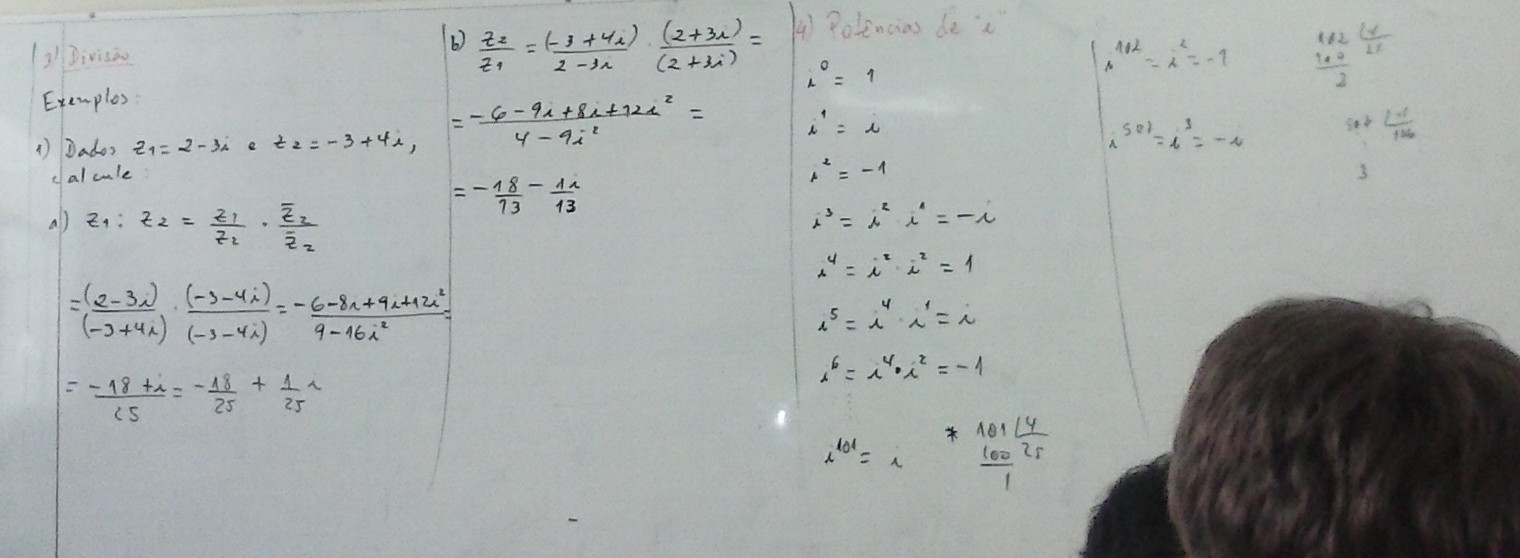 3) Divisão
Exemplos:
1) Dados z₁ = 2-3i e z₂ = -3+4i,
calcule:
a) z₁ : z₂ = z₁/z₂ · z̄₂/z̄₂
= (2-3i)/(-3+4i) · (-3-4i)/(-3-4i) = (-6-8i+9i+12i²)/(9-16i²) =
= (-18+i)/25 = -18/25 + 1/25 i
b) z₂/z₁ = (-3+4i)/(2-3i) · (2+3i)/(2+3i) =
= (-6-9i+8i+12i²)/(4-9i²) =
= -18/13 - 1i/13
4) Potências de "i"
i⁰ = 1
i¹ = i
i² = -1
i³ = i² i¹ = -i
i⁴ = i² · i² = 1
i⁵ = i⁴ · i¹ = i
i⁶ = i⁴ · i² = -1
i¹⁰¹ = i
* 101 | 4
100 25
1
i¹⁰² = i² = -1
102 | 4
100 25
2
= i³ = -i
3